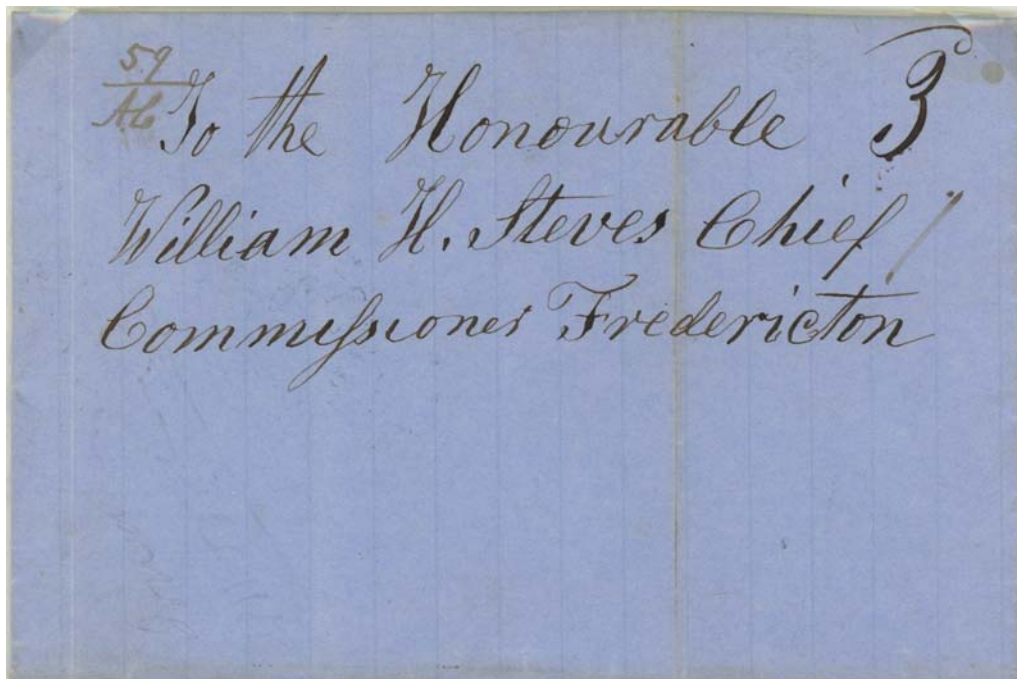 59
To the Honourable 3
William H. Steves Chief
Commissioner Fredericton